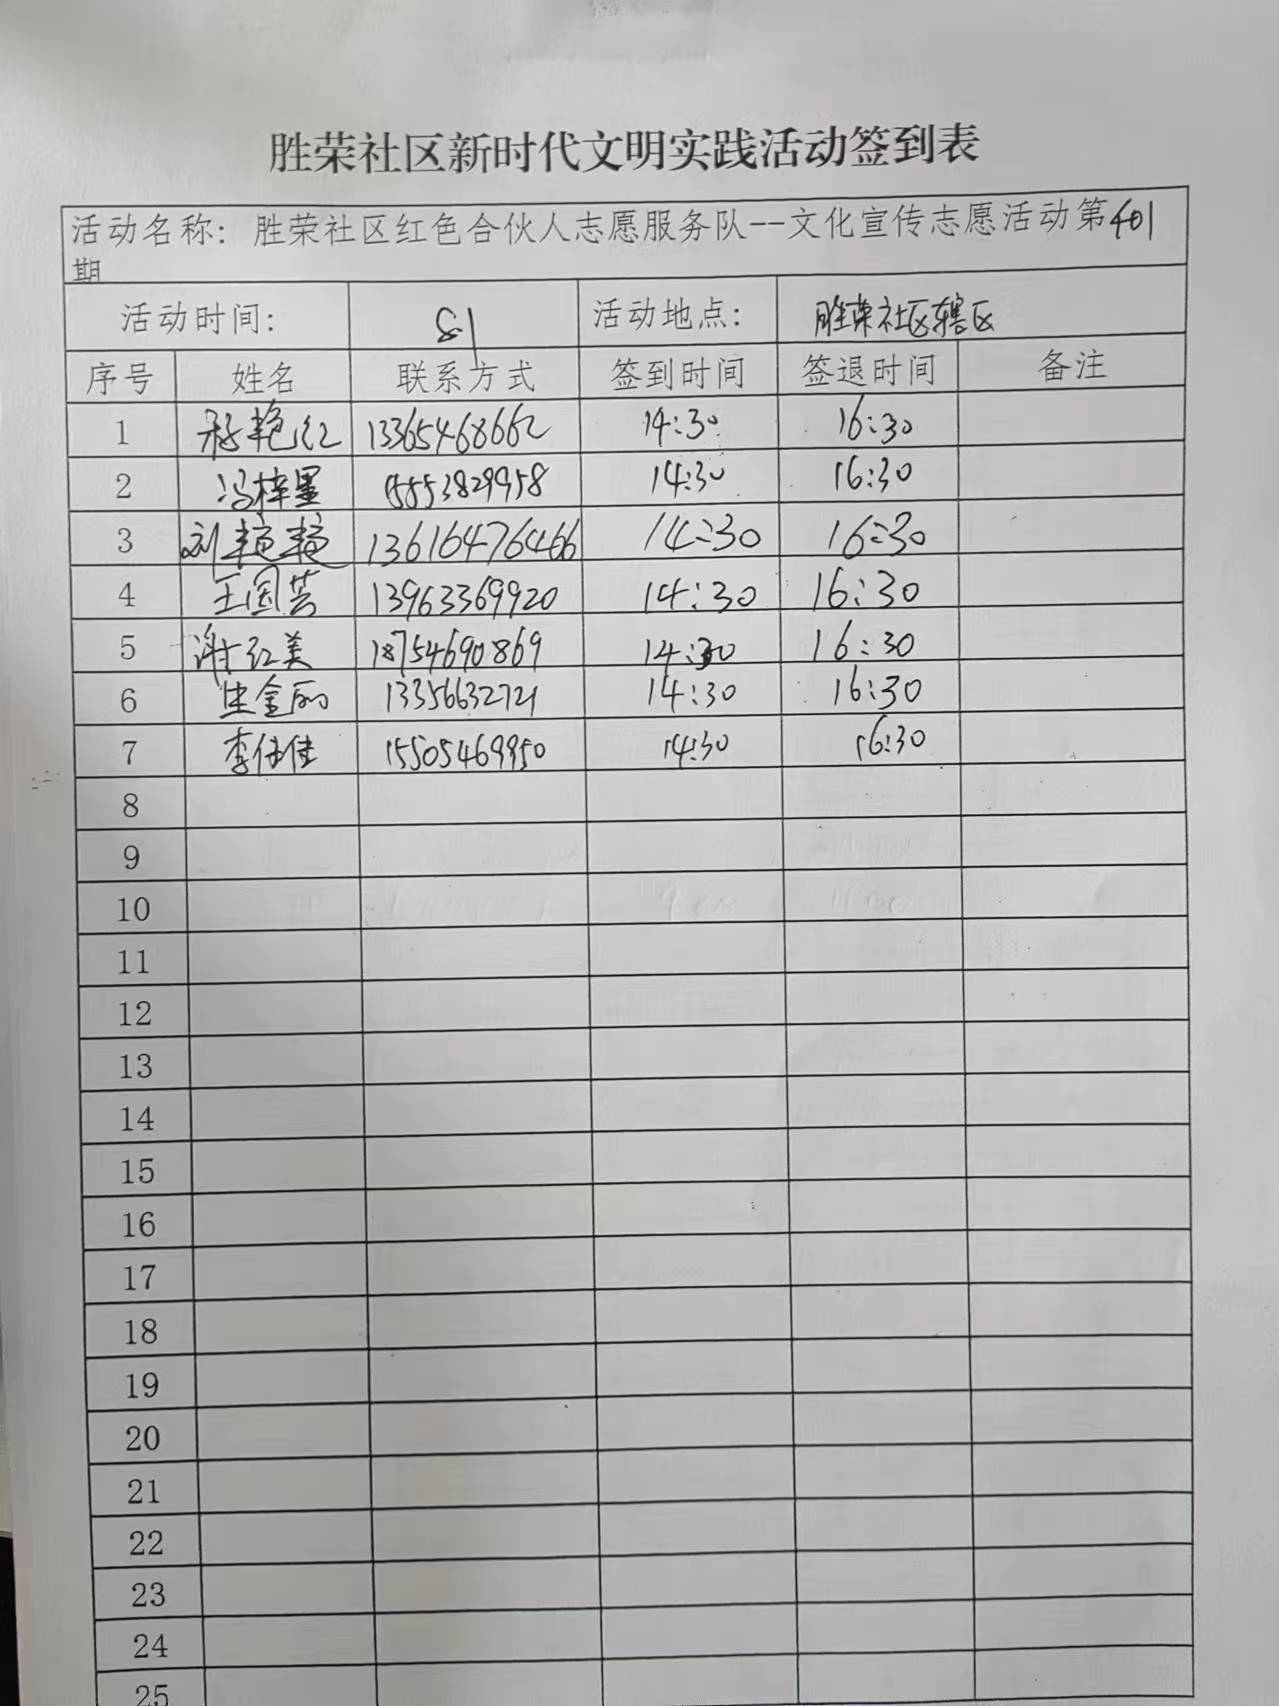 胜荣社区新时代文明实践活动签到表
活动名称：胜荣社区红色合伙人志愿服务队--文化宣传志愿活动第401
期
活动时间： 8.1 活动地点： 胜荣社区辖区
序号 姓名 联系方式 签到时间 签退时间 备注
1 艳红 13365468662 14:30 16:30
2 冯梓墨 15553829958 14:30 16:30
3 刘艳艳 13616476466 14:30 16:30
4 王国芸 13963369920 14:30 16:30
5 谢红美 18754690869 14:30 16:30
6 金丽 13356632721 14:30 16:30
7 李佳 15505469950 14:30 16:30
8
9
10
11
12
13
14
15
16
17
18
19
20
21
22
23
24
25